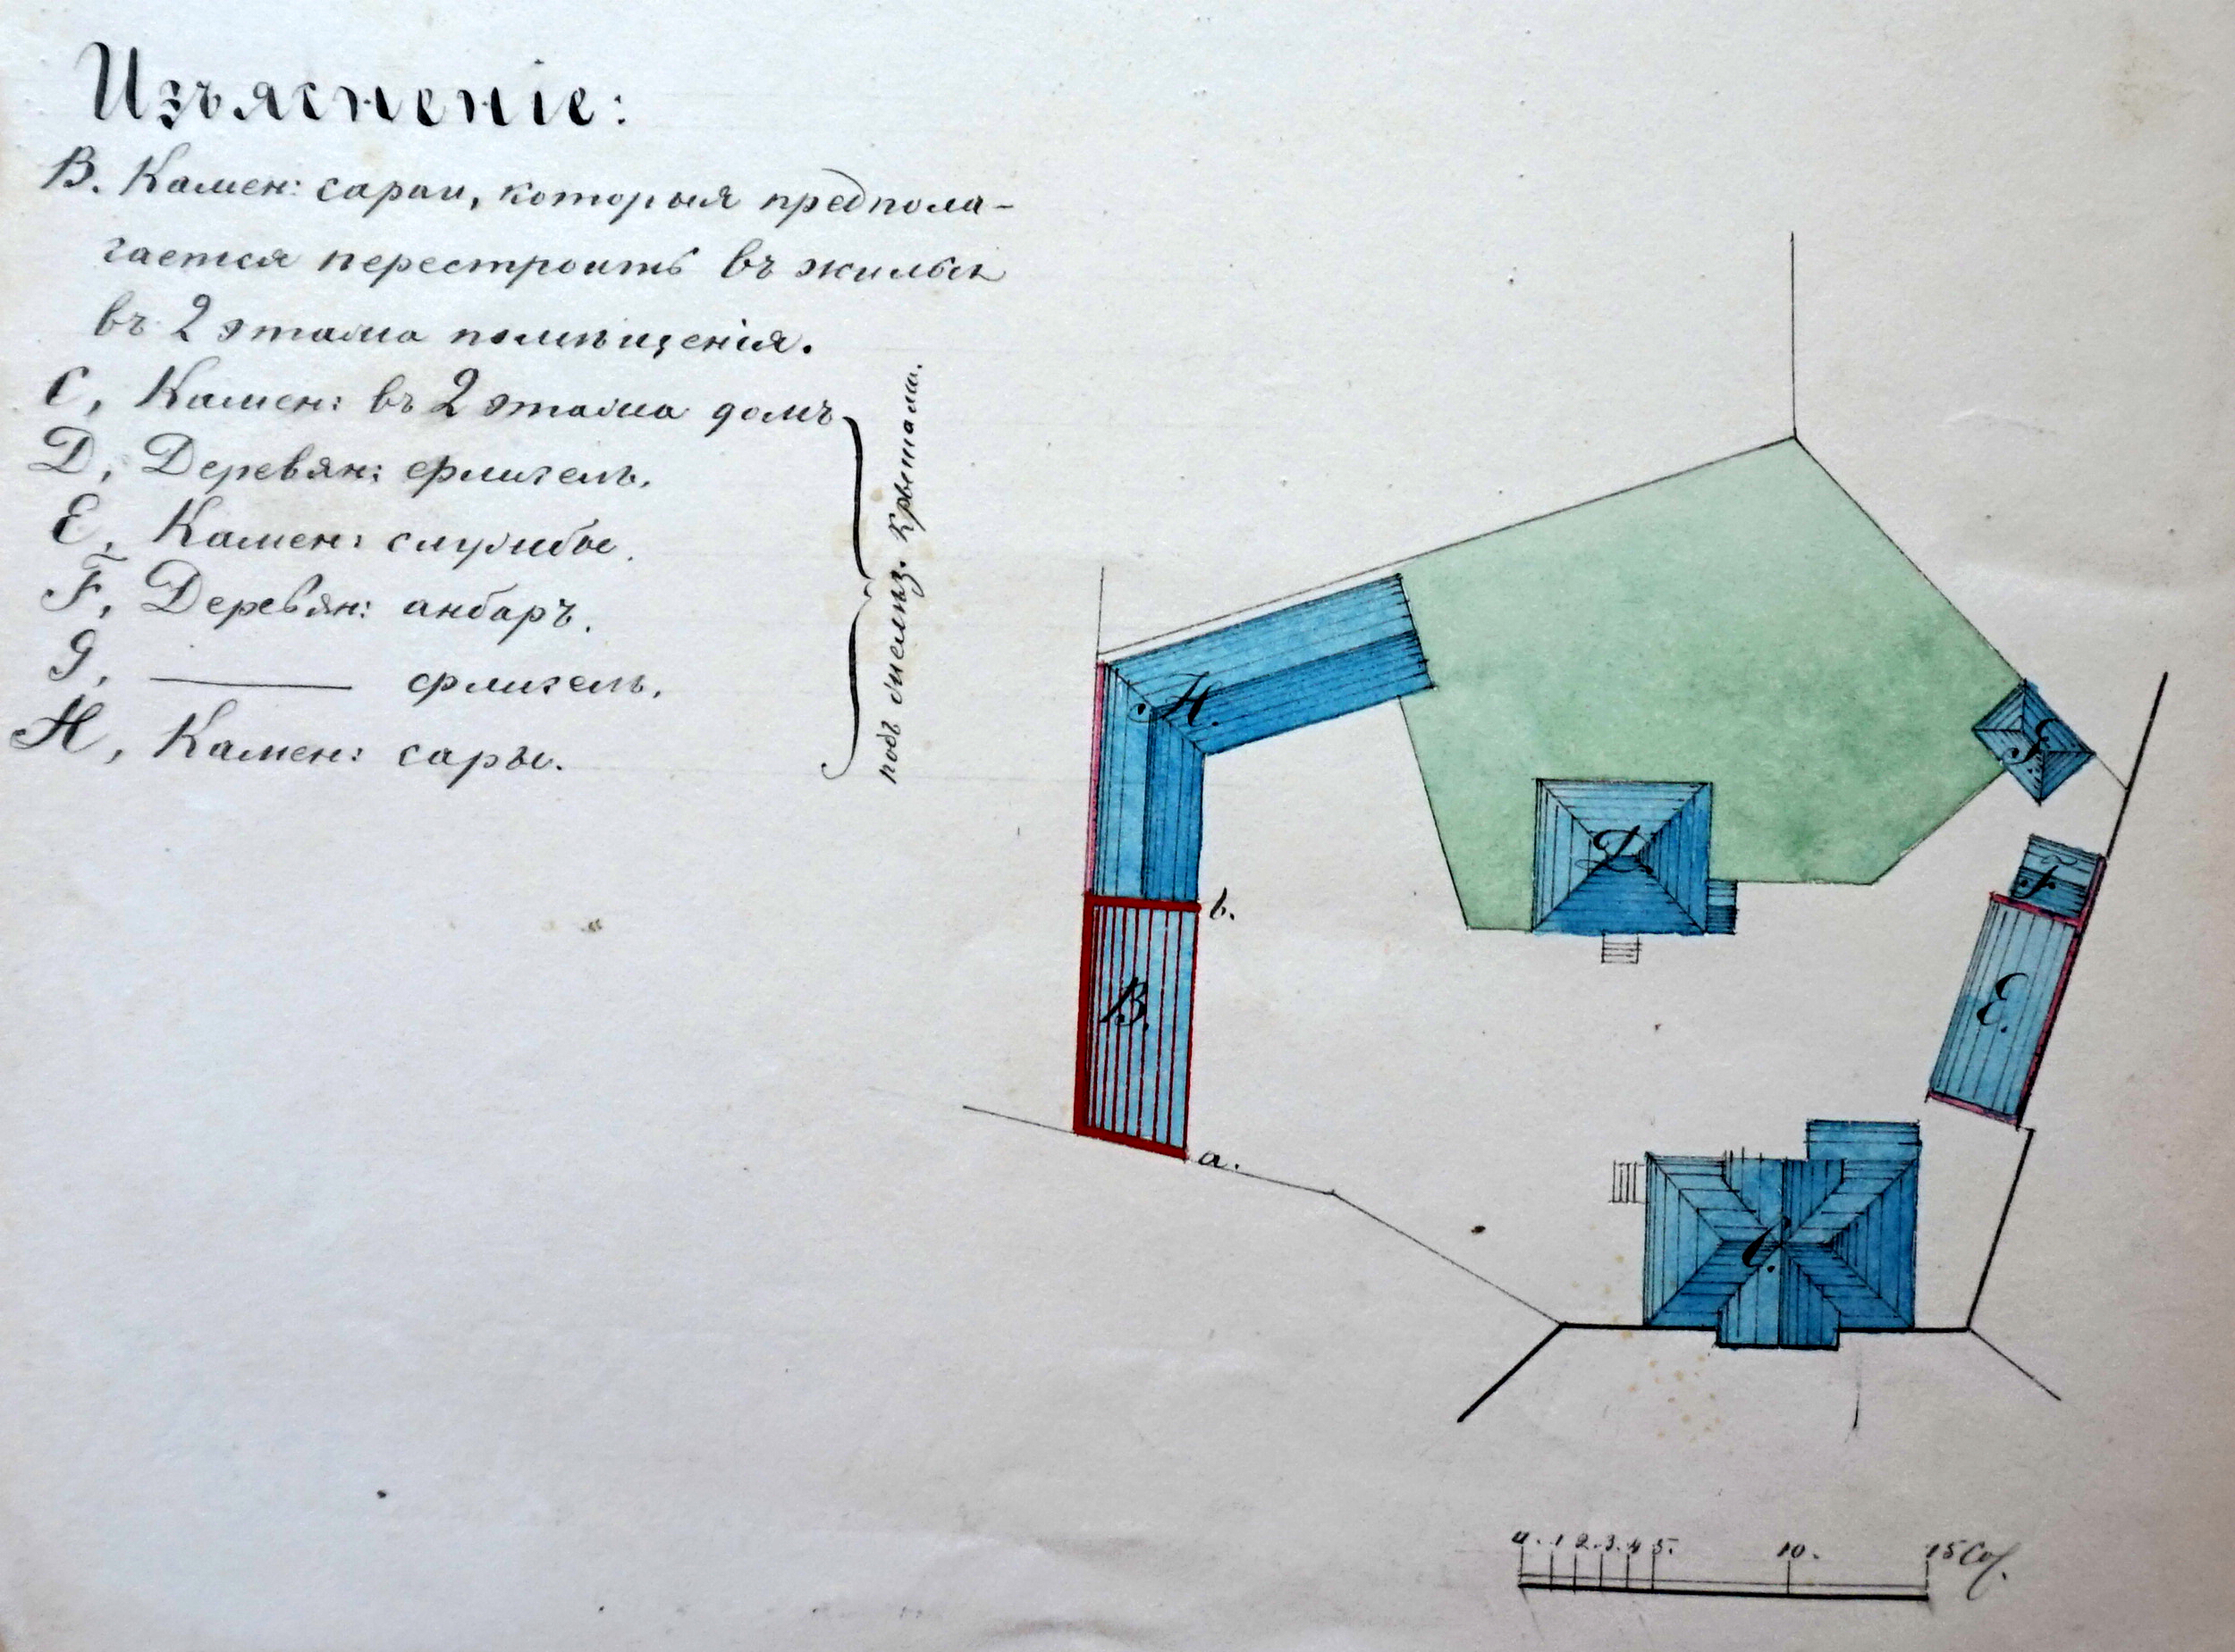 Изъясненіе:
B. Камен: сараи, которыя предпола-
гается перестроить въ жилыя
въ 2 этажа помѣщенія.
C, Камен: въ 2 этажа домъ
D, Деревян: флигель,
E, Камен: службы.
F, Деревян: анбаръ.
G, ——— флигель,
H, Камен: сараи.
подъ желѣз. крышами.
H.
G
D.
F.
b.
B.
E.
a.
C.
0. 1 2. 3. 4 5. 10. 15 Саж.